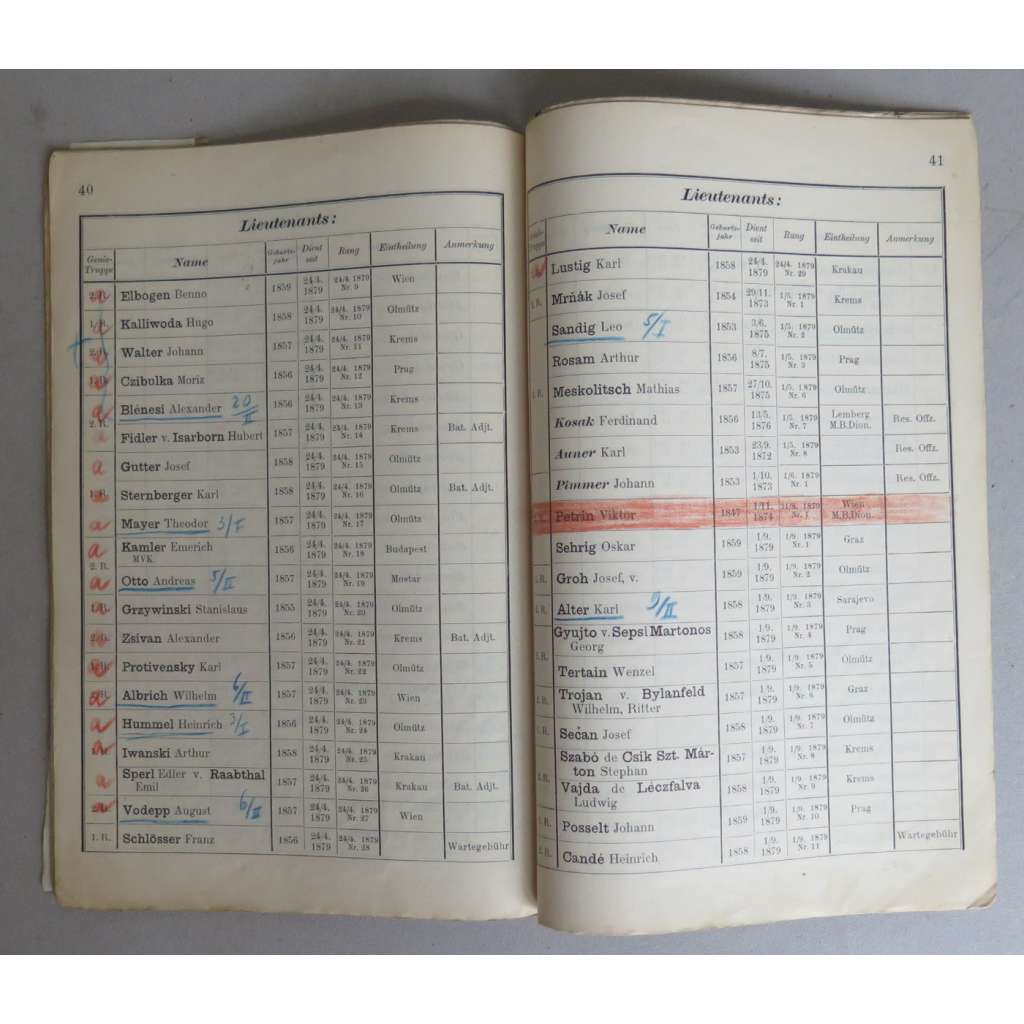 40
Lieutenants:
Genie-Truppe Name Geburts-jahr Dient seit Rang Eintheilung Anmerkung
Elbogen Benno 1859 24/4. 1879 24/4. 1879 Nr. 9 Wien
Kalliwoda Hugo 1858 24/4. 1879 24/4. 1879 Nr. 10 Olmütz
Walter Johann 1857 24/4. 1879 24/4. 1879 Nr. 11 Krems
Czibulka Moriz 1856 24/4. 1879 24/4. 1879 Nr. 12 Prag
a Blénesi Alexander 20/II 1856 24/4. 1879 24/4. 1879 Nr. 13 Krems
2. R. Fidler v. Isarborn Hubert 1857 24/4. 1879 24/4. 1879 Nr. 14 Krems Bat. Adjt.
a Gutter Josef 1858 24/4. 1879 24/4. 1879 Nr. 15 Olmütz
Sternberger Karl 1858 24/4. 1879 24/4. 1879 Nr. 16 Olmütz Bat. Adjt.
a Mayer Theodor 3/I 1857 24/4. 1879 24/4. 1879 Nr. 17 Olmütz
a Kamler Emerich 1856 24/4. 1879 24/4. 1879 Nr. 18 Budapest
2. R. MVK.
a Otto Andreas 5/II 1857 24/4. 1879 24/4. 1879 Nr. 19 Mostar
Grzywinski Stanislaus 1855 24/4. 1879 24/4. 1879 Nr. 20 Olmütz
Zsivan Alexander 1856 24/4. 1879 24/4. 1879 Nr. 21 Krems Bat. Adjt.
Protivensky Karl 1857 24/4. 1879 24/4. 1879 Nr. 22 Olmütz
Albrich Wilhelm 6/II 1857 24/4. 1879 24/4. 1879 Nr. 23 Wien
a Hummel Heinrich 3/I 1856 24/4. 1879 24/4. 1879 Nr. 24 Olmütz
Iwanski Arthur 1858 24/4. 1879 24/4. 1879 Nr. 25 Krakau
a Sperl Edler v. Raabthal 1857 24/4. 1879 24/4. 1879 Nr. 26 Krakau Bat. Adjt.
Emil
Vodepp August 6/II 1857 24/4. 1879 24/4. 1879 Nr. 27 Wien
1. R. Schlösser Franz 1856 24/4. 1879 24/4. 1879 Nr. 28 Wartegebühr
41
Lieutenants:
Truppe Name Geburts-jahr Dient seit Rang Eintheilung Anmerkung
Lustig Karl 1858 24/4. 1879 24/4. 1879 Nr. 29 Krakau
1. R. Mrňák Josef 1854 29/11. 1873 1/5. 1879 Nr. 1 Krems
Sandig Leo 5/I 1853 3/6. 1875 1/5. 1879 Nr. 2 Olmütz
Rosam Arthur 1856 8/7. 1875 1/5. 1879 Nr. 3 Prag
Meskolitsch Mathias 1857 27/10. 1875 1/5. 1879 Nr. 6 Olmütz
Kosak Ferdinand 1856 13/5. 1876 1/5. 1879 Nr. 7 Lemberg M.B.Dion. Res. Offz.
Auner Karl 1853 23/9. 1872 1/5. 1879 Nr. 8 Res. Offz.
Pimmer Johann 1853 1/10. 1873 1/6. 1879 Nr. 1 Res. Offz.
Petrin Viktor 1847 1/11. 1874 31/8. 1879 Nr. 1 Wien M.B.Dion.
Sehrig Oskar 1859 1/9. 1879 1/9. 1879 Nr. 1 Graz
Groh Josef, v. 1859 1/9. 1879 1/9. 1879 Nr. 2 Olmütz
Alter Karl 9/II 1858 1/9. 1879 1/9. 1879 Nr. 3 Sarajevo
Gyujto v. Sepsi Martonos 1858 1/9. 1879 1/9. 1879 Nr. 4 Prag
Georg
Tertain Wenzel 1857 1/9. 1879 1/9. 1879 Nr. 5 Olmütz
Trojan v. Bylanfeld 1857 1/9. 1879 1/9. 1879 Nr. 6 Graz
Wilhelm, Ritter
Sečan Josef 1858 1/9. 1879 1/9. 1879 Nr. 7 Olmütz
Szabó de Csik Szt. Már-
ton Stephan 1857 1/9. 1879 1/9. 1879 Nr. 8 Krems
Vajda de Léczfalva 1858 1/9. 1879 1/9. 1879 Nr. 9 Krems
Ludwig
Posselt Johann 1859 1/9. 1879 1/9. 1879 Nr. 10 Prag
Candé Heinrich 1858 1/9. 1879 1/9. 1879 Nr. 11 Wartegebühr